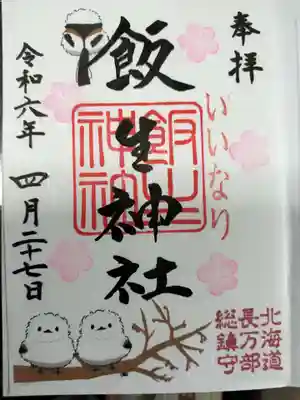 奉拝
いいなり
飯生神社
飯生神社
令和六年
四月二十七日
北海道
長万部
総鎮守